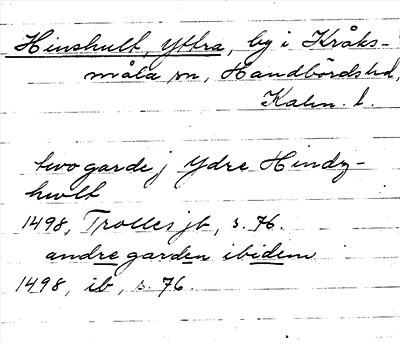 Hinshult, Yttra, by i Kråks-
måla sn, Handbörds hd,
Kalm. l.
two garde j Ydre Hindz-
hwlt
1498, Trolles jb, s. 76.
andre garden ibidem
1498, ib, s. 76.